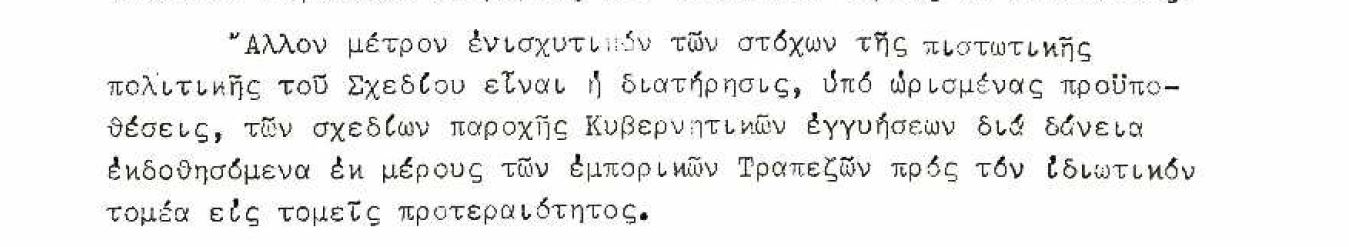 Ἄλλον μέτρον ἐνισχυτικόν τῶν στόχων τῆς πιστωτικῆς
πολιτικῆς τοῦ Σχεδίου εἶναι ἡ διατήρησις, ὑπό ὡρισμένας προϋπο-
θέσεις, τῶν σχεδίων παροχῆς Κυβερνητικῶν ἐγγυήσεων διά δάνεια
ἐκδοθησόμενα ἐκ μέρους τῶν ἐμπορικῶν Τραπεζῶν πρός τόν ἰδιωτικόν
τομέα εἰς τομεῖς προτεραιότητος.